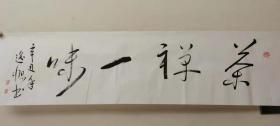 茶禅一味
辛丑年
逸恒书